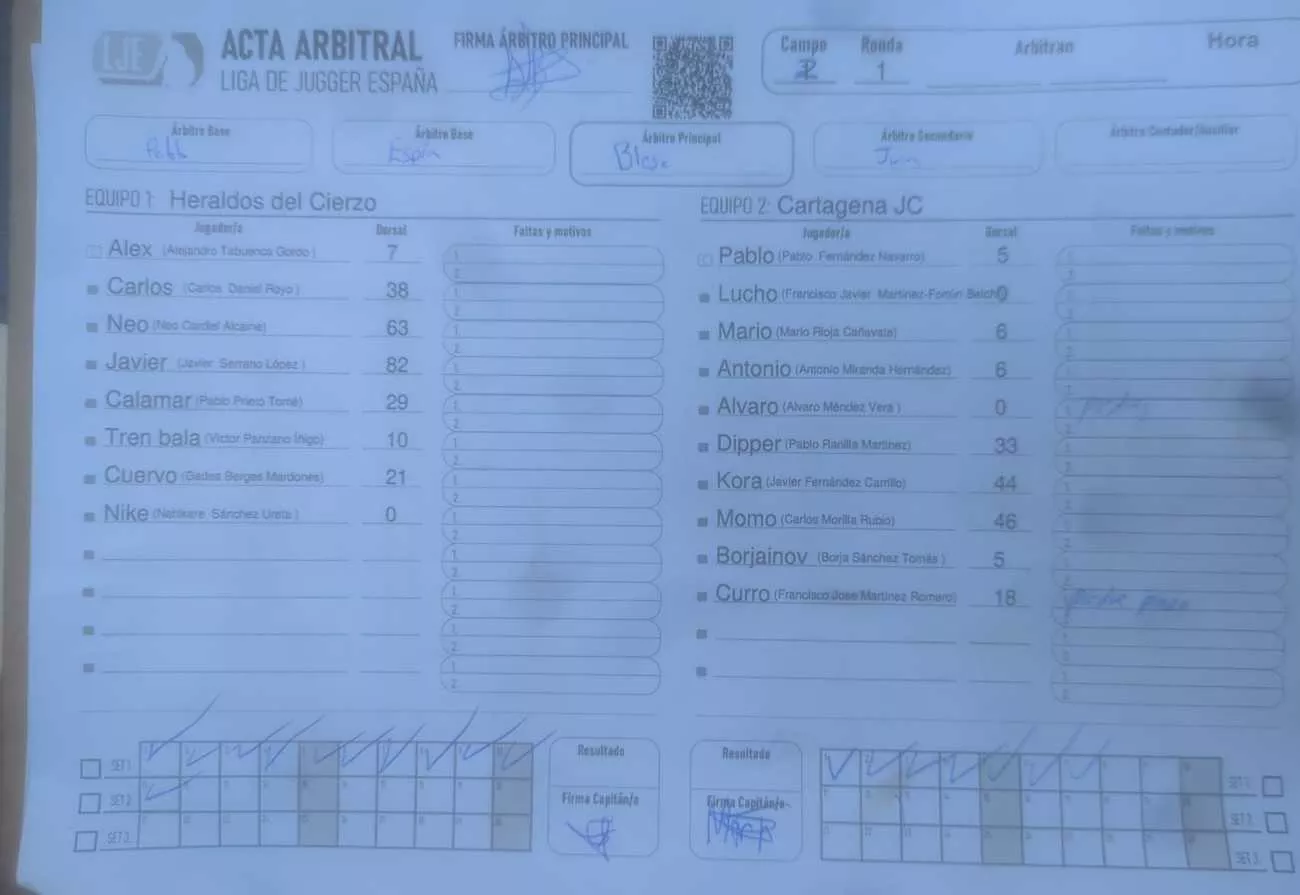 LJE
ACTA ARBITRAL
LIGA DE JUGGER ESPAÑA
FIRMA ÁRBITRO PRINCIPAL
Campo Ronda Arbitran Hora
2 1
Árbitro Base Árbitro Base Árbitro Principal Árbitro Secundario Árbitro Contador/Auxiliar
EQUIPO 1: Heraldos del Cierzo
Jugador/a Dorsal Faltas y motivos
Alex (Alejandro Tabuenca Gordo) 7
Carlos (Carlos Daniel Royo) 38
Neo (Neo Cardiel Alcaine) 63
Javier (Javier Serrano López) 82
Calamar (Pablo Prieto Tomé) 29
Tren bala (Victor Panzano Iñigo) 10
Cuervo (Gades Berges Mardones) 21
Nike (Sánchez) 0
EQUIPO 2: Cartagena JC
Jugador/a Dorsal Faltas y motivos
Pablo (Pablo Fernández Navarro) 5
Lucho (Francisco Javier Martinez-Fortún Belch 0
Mario (Mario Rioja Cañavate) 6
Antonio (Antonio Miranda Hernández) 6
Alvaro (Alvaro Méndez Vera) 0
Dipper (Pablo Ranilla Martinez) 33
Kora (Javier Fernández Carrillo) 44
Momo (Carlos Morilla Rubio) 46
Borjainov (Borja Sánchez Tomás) 5
Curro (Francisco Jose Martinez Romero) 18
SET 1:
SET 2:
SET 3:
Resultado
Firma Capitán/a
Resultado
Firma Capitán/a
SET 1:
SET 2:
SET 3: